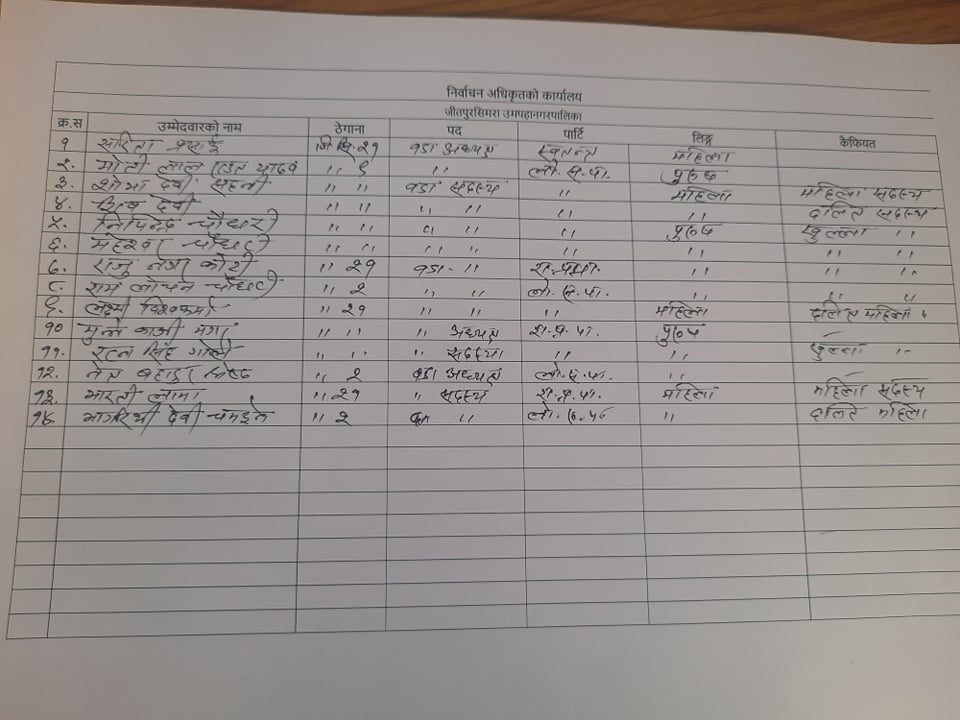 निर्वाचन अधिकृतको कार्यालय
जीतपुरसिमरा उमपहानगरपालिका
क्र.स उम्मेदवारको नाम ठेगाना पद पार्टि लिङ्ग कैफियत
१ सरिता प्रसाई जि.सि. २१ वडा अध्यक्ष स्वतन्त्र महिला
२. मोती लाल राउत यादव " ९ " लो.स.पा. पुरुष
३. शोभा देवी सहनी " " वडा सदस्य " महिला महिला सदस्य
४. देवी " " " " " " दलित सदस्य
५. चौधरी " " " " " पुरुष खुल्ला "
६. महेश्वर चौधरी " " " " " " " "
७. राजु " २१ वडा - " रा.प्र.पा. " " "
८. राम लोचन चौधरी " २ " " लो.स.पा. " " "
९. लक्ष्मी विश्वकर्मा " २१ " " " महिला दलित महिला "
१० काजी " " " अध्यक्ष रा.प्र.पा. पुरुष
११. रत्न सिंह " " " सदस्य " " खुल्ला "
१२. बहादुर " २ वडा अध्यक्ष लो.स.पा. "
१३. भारती लामा " २१ " सदस्य रा.प्र.पा. महिला महिला सदस्य
१४. देवी " २ " लो.स.पा " दलित महिला